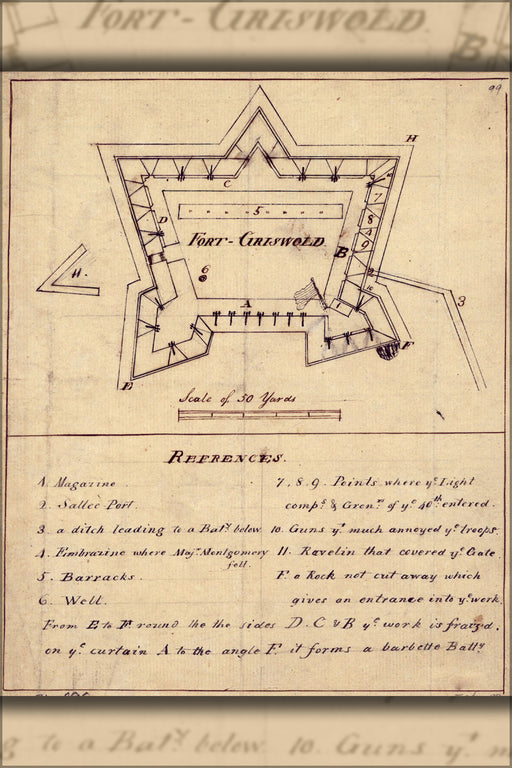 99
H
C
7
8
4
9
D
5
FORT-GRISWOLD.
B
6
11.
10
3
A
1
F
E
Scale of 50 Yards
REFRENCES.
1. Magazine
2. Sallee Port.
3. a ditch leading to a Baty. below.
4. Embrazine where Majr. Montgomery fell.
5. Barracks.
6. Well.
7, 8, 9. Points where ye. Light
comps. & Grenrs. of ye. 40th. entered.
10. Guns yt. much annoyed ye. troops.
11. Ravelin that covered ye. Gate.
F. a Rock not cut away which
gives an entrance into ye. work.
From E to F round the the sides D. C & B ye. work is fraiz'd.
on ye. curtain A to the angle F. it forms a barbette Batty